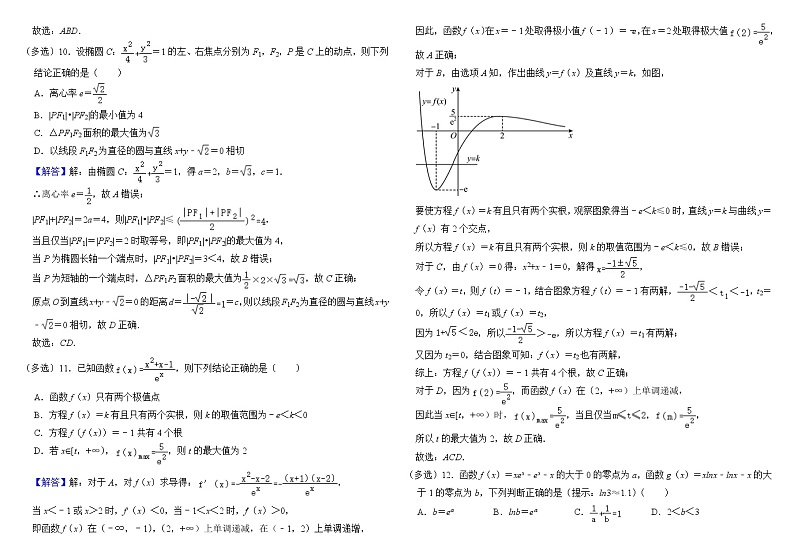 故选：ABD．
（多选）10．设椭圆C：x²/4+y²/3=1的左、右焦点分别为F₁，F₂，P是C上的动点，则下列
结论正确的是（　　）
A．离心率e=√2/2
B．|PF₁|•|PF₂|的最小值为4
C．△PF₁F₂面积的最大值为√3
D．以线段F₁F₂为直径的圆与直线x+y﹣√2=0相切
【解答】解：由椭圆C：x²/4+y²/3=1，得a=2，b=√3，c=1．
∴离心率e=1/2，故A错误；
|PF₁|+|PF₂|=2a=4，则|PF₁|•|PF₂|≤(|PF₁|+|PF₂|/2)²=4，
当且仅当|PF₁|=|PF₂|=2时取等号，即|PF₁|•|PF₂|的最大值为4，
当P为椭圆长轴一个端点时，|PF₁|•|PF₂|=3<4，故B错误；
当P为短轴的一个端点时，△PF₁F₂面积的最大为1/2×2×√3=√3，故C正确；
原点O到直线x+y﹣√2=0的距离d=|-√2|/√2=1=c，则以线段F₁F₂为直径的圆与直线x+y
﹣√2=0相切，故D正确．
故选：CD．
（多选）11．已知函数f(x)=x²+x-1/eˣ，则下列结论正确的是（　　）
A．函数f（x）只有两个极值点
B．方程f（x）=k有且只有两个实根，则k的取值范围为﹣e<k<0
C．方程f（f（x））=﹣1共有4个根
D．若x∈[t，+∞），f(x)max=5/e²，则t的最大值为2
【解答】解：对于A，对f（x）求导得：f′(x)=-x²-x-2/eˣ=-(x+1)(x-2)/eˣ，
当x<﹣1或x>2时，f′（x）<0，当﹣1<x<2时，f′（x）>0，
即函数f（x）在（﹣∞，﹣1），（2，+∞）上单调递减，在（﹣1，2）上单调递增，
因此，函数f（x）在x=﹣1处取得极小值f（﹣1）=﹣e，在x=2处取得极大值f(2)=5/e²，
故A正确；
对于B，由选项A知，作出曲线y=f（x）及直线y=k，如图，
y
y=f(x)
5/e²
-1
O
2
x
y=k
-e
要使方程f（x）=k有且只有两个实根，观察图象得当﹣e<k≤0时，直线y=k与曲线y=
f（x）有2个交点，
所以方程f（x）=k有且只有两个实根，则k的取值范围为﹣e<k≤0，故B错误；
对于C，由f（x）=0得：x²+x﹣1=0，解得x=-1±√5/2，
令f（x）=t，则f（t）=﹣1，结合图象方程f（t）=﹣1有两解，-1-√5/2<t₁<-1，t₂=
0，所以f（x）=t₁或f（x）=t₂，
因为1+√5<2e，所以-1-√5/2>-e，所以方程f（x）=t₁有两解；
又因为t₂=0，结合图象可知：f（x）=t₂也有两解，
综上：方程f（f（x））=﹣1共有4个根，故C正确；
对于D，因为f(2)=5/e²，而函数f（x）在（2，+∞）上单调递减，
因此当x∈[t，+∞）时，f(x)max=5/e²，当且仅当m≤t≤2，f(m)=5/e²，
所以t的最大值为2，故D正确．
故选：ACD．
（多选）12．函数f（x）=xeˣ﹣eˣ﹣x的大于0的零点为a，函数g（x）=xlnx﹣lnx﹣x的大
于1的零点为b，下列判断正确的是（提示：ln3≈1.1）（　　）
A．b=eᵃ　B．lnb=eᵃ　C．1/a+1/b=1　D．2<b<3